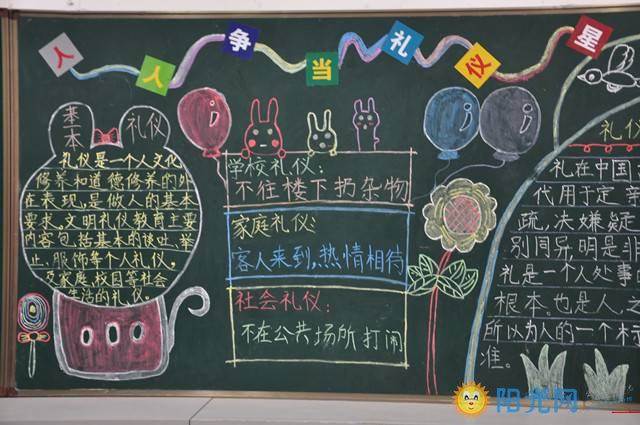 人人争当礼仪星
基本 礼仪
礼仪是一个人文化
修养和道德修养的外
在表现,是做人的基本
要求。文明礼仪教育主要
内容包括基本的谈吐、举
止、服饰等个人礼仪。
及家庭、校园等社会
生活的礼仪。
学校礼仪:
不往楼下扔杂物
家庭礼仪:
客人来到,热情相待
社会礼仪:
不在公共场所打闹
礼仪
礼在中国
代用于定
疏,决嫌疑
别同异,明是非
礼是一个人处事
根本.也是人
所以为人的一个标
准。
阳光网